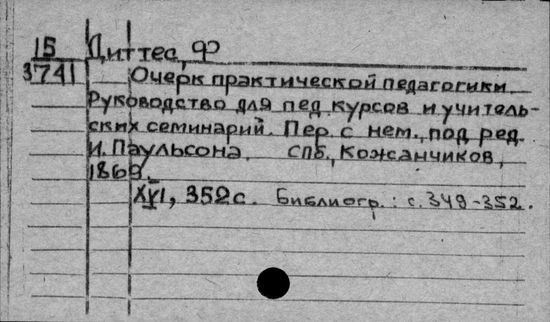 15 Диттес, Ф
3741 Очерк практической педагогики.
Руководство для пед. курсов и учитель-
ских семинарий. Пер. с нем., под ред.
И. Паульсона. СПб., Кожанчиков,
1869.
XVI, 352 с. Библиогр.: с. 349-352.